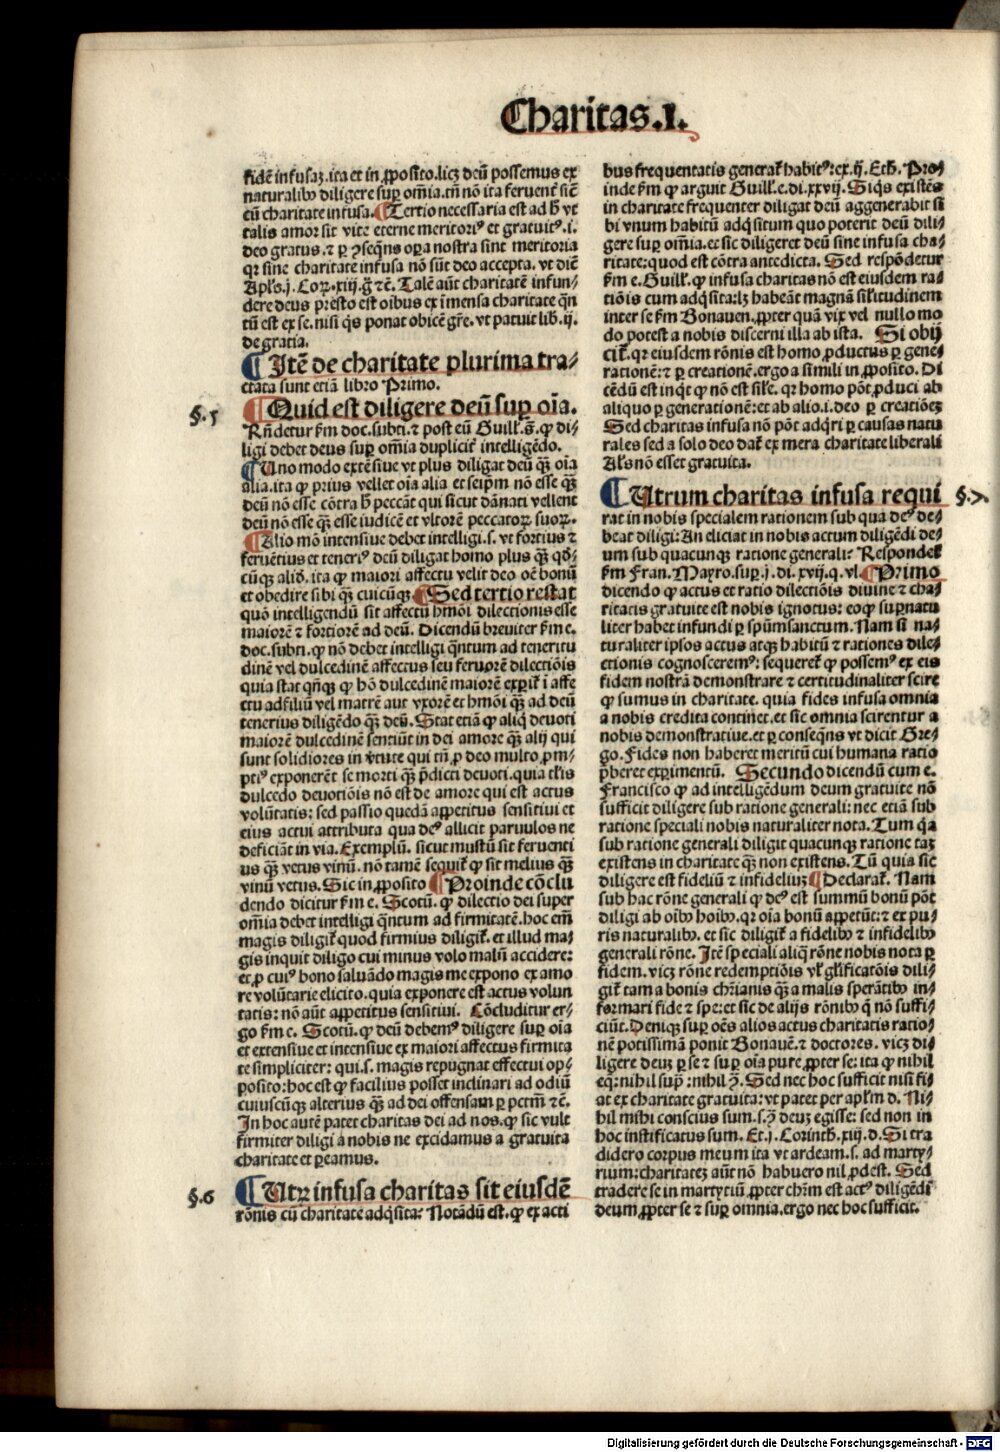 Charitas.I.
fidē infusaz.ita et in ꝓposito.licꝫ deū possemus ex
naturalibꝰ diligere suꝑ om̄ia.tn̄ nō ita feruent͛ sic̄
cū charitate infusa.¶Tertio necessaria est ad h̄ vt
talis amor sit vite eterne meritoriꝰ et gratuitꝰ.i.
deo gratus.⁊ ꝑ ꝯseq̄ns oꝑa nostra sint meritoria
qꝛ sine charitate infusa nō sūt deo accepta. vt dic̄
Apl̓s.j. Coꝝ.xiij.g̈ ⁊c̄. Talē aūt charitatē infun⸗
dere deus presto est oībus ex īmensa charitate q̄n
tū est ex se.nisi q̇s ponat obicē gr̄e.vt patuit lib.ij.
de gratia.
¶Itē de charitate plurima tra⸗
ctata sunt etiā libro Primo.
§.5 ¶Quid est diligere deū suꝑ oīa.
Rn̄detur ẜm doc.subti.⁊ post eū Guill̓.g̈.ꝙ di⸗
ligi debet deus suꝑ om̄ia duplicit͛ intelligēdo.
¶Uno modo extēsiue vt plus diligat deū q̄ꝫ oīa
alia.ita ꝙ prius vellet oīa alia et seip̄m nō esse q̄ꝫ
deū nō esse cōtra h̄ peccāt qui sicut dānati vellent
deū nō esse q̄ꝫ esse iudicē et vltorē peccatoꝝ suoꝝ.
¶Alio mō intensiue debet intelligi.s. vt fortius ⁊
feruētius et teneriꝰ deū diligat homo plus q̄ꝫ qd̓⸗
cūqꝫ aliḋ. ita ꝙ maiori affectu velit deo oē bonū
et obedire sibi q̄ꝫ cuicūqꝫ.¶Sed tertio restat
quō intelligendū sit affectū hm̄oi dilectionis esse
maiorē ⁊ fortiorē ad deū. Dicendū breuiter ẜm e.
doc.subti.ꝙ nō debet intelligi q̄ntum ad teneritu
dinē vel dulcedinē affectus seu feruorē dilectiōis
quia stat qn̄qꝫ ꝙ hō dulcedinē maiorē exꝑit͛ ī affe
ctu ad filiū vel matrē aut vxorē et hm̄oi q̄ꝫ ad deū
tenerius diligēdo q̄ꝫ deū. Stat etiā ꝙ aliq̇ deuoti
maiorē dulcedinē sentiūt in dei amore q̄ꝫ alij qui
sunt solidiores in v̓tute qui tn̄ ꝓ deo multo ꝓm⸗
ptiꝰ exponerēt se morti q̄ꝫ p̄dicti deuoti.quia tl̓is
dulcedo deuotiōis nō est de amore qui est actus
volūtatis: sed passio quedā appetitus sensitiui et
eius actui attributa qua deꝰ allicit paruulos ne
deficiāt in via. Exemplū. sicut mustū sit feruenti
us q̄ꝫ vetus vinū. nō tamē sequit͛ ꝙ sit melius q̄ꝫ
vinū vetus. Sic in ꝓposito ¶Proinde cōclu
dendo dicitur ẜm e. Scotū. ꝙ dilectio dei super
om̄ia debet intelligi q̄ntum ad firmitatē.hoc em̄
magis diligit͛ quod firmius diligit͛. et illud ma⸗
gis inquit diligo cui minus volo malū accidere:
et ꝓ cuiꝰ bono saluādo magis me expono ex amo
re volūtarie elicito. quia exponere est actus volun
tatis: nō aūt appetitus sensitiui. Cōcluditur er⸗
go ẜm e. Scotū.ꝙ deū debemꝰ diligere suꝑ oīa
et extensiue et intensiue ex maiori affectus firmita
te simpliciter: qui.s. magis repugnat effectui op⸗
posito:hoc est ꝙ facilius posset inclinari ad odiū
cuiuscūqꝫ alterius q̄ꝫ ad dei offensam ꝑ pctm̄ ⁊c̄.
In hoc autē patet charitas dei ad nos.ꝙ sic vult
firmiter diligi a nobis ne excidamus a gratuita
charitate et ꝑeamus.
§.6 ¶Utꝝ infusa charitas sit eiusdē
rōnis cū charitate adq̇sita: Notādū est.ꝙ ex acti
bus frequentatis general̓ habitꝰ:ex.ij. Eth. Pro⸗
inde ẜm ꝙ arguit Guill̓.e.di.xxvij. Siq̇s existēs
in charitate frequenter diligat deū aggenerabit si
bi vnum habitū adq̇situm quo poterit deū dili⸗
gere suꝑ om̄ia.et sic diligeret deū sine infusa cha⸗
ritate:quod est cōtra antedicta. Sed respōdetur
ẜm e. Guill̓. ꝙ infusa charitas nō est eiusdem ra⸗
tiōis cum adq̇sita:lꝫ habeāt magnā sil̓itudinem
inter se ẜm Bonauen. ꝓpter quā vix vel nullo mo
do potest a nobis discerni illa ab ista. Si obij
cit͛.qꝛ eiusdem rōnis est homo ꝓductus ꝑ gene⸗
rationē:⁊ ꝑ creationē.ergo a simili in ꝓposito. Di
cēdū est inq̇t ꝙ nō est sil̓e. qꝛ homo pōt ꝓduci ab
aliquo ꝑ generationē:et ab alio.i.deo ꝑ creationēz
Sed charitas infusa nō pōt adq̇ri ꝑ causas natu
rales sed a solo deo dat͛ ex mera charitate liberali
Al̓s nō esset gratuita.
¶Utrum charitas infusa requi §.7.
rat in nobis specialem rationem sub qua deꝰ de⸗
beat diligi:An eliciat in nobis actum diligēdi de⸗
um sub quacunqꝫ ratione generali: Respondet͛
ẜm Fran. Mayro.suꝑ.j.di.xvij.q.vl.¶Primo
dicendo ꝙ actus et ratio dilectiōis diuine ⁊ cha⸗
ritatis gratuite est nobis ignotus: eo ꝙ suꝑnatu
liter habet infundi ꝑ spūmsanctum. Nam si na⸗
turaliter ipsos actus atqꝫ habitū ⁊ rationes dile⸗
ctionis cognosceremꝰ: sequeret͛ ꝙ possemꝰ ex eis
fidem nostrā demonstrare ⁊ certitudinaliter scire
ꝙ sumus in charitate. quia fides infusa omnia
a nobis credita continet.et sic omnia scirentur a
nobis demonstratiue.et ꝑ conseq̄ns vt dicit Gre⸗
go. Fides non haberet meritū cui humana ratio
p̄beret exꝑimentū. Secundo dicendū cum e.
Francisco ꝙ ad intelligēdum deum gratuite nō
sufficit diligere sub ratione generali: nec etiā sub
ratione speciali nobis naturaliter nota. Tum q̇a
sub ratione generali diligit quacunqꝫ ratione taꝫ
existens in charitate q̄ꝫ non existens. Tū quia sic
diligere est fideliū ⁊ infideliuꝫ ¶Declarat͛. Nam
sub hac rōne generali ꝙ deꝰ est summū bonū pōt
diligi ab oībꝰ hoībꝰ. qꝛ oīa bonū appetūt: ⁊ ex pu⸗
ris naturalibꝰ. et sic diligit͛ a fidelibꝰ ⁊ infidelibꝰ
generali rōne. Itē speciali aliq̇ rōne nobis nota ꝑ
fidem. vicꝫ rōne redemptiōis vl̓ gl̓ificatōis dili⸗
git͛ tam a bonis christianis q̄ꝫ a malis sperātibꝰ in⸗
formari fide ⁊ spe:et sic de alijs rōnibꝰ q̄ nō suffi⸗
ciūt. Deniqꝫ suꝑ oēs alios actus charitatis ratio⸗
nē potissimā ponit Bonauē.⁊ doctores. vicꝫ di⸗
ligere deuꝫ ꝑ se ⁊ suꝑ oīa pure ꝓpter se: ita ꝙ nihil
eq̄: nihil sup̄ :nihil ꝯ̄. Sed nec hoc sufficit nisi fi⸗
at ex charitate gratuita: vt patet per apl̓m d. Ni⸗
hil mihi conscius sum.s.ꝯ̄ deuꝫ egisse: sed non in
hoc iustificatus sum. Et.j. Corinth.xiij.d. Si tra
didero corpus meum ita vt ardeam.s. ad marty⸗
rium:charitateꝫ aūt nō habuero nil ꝓdest. Sed
tradere se in martyriū ꝓpter chr̄m est actꝰ diligēdi
deum ꝓpter se ⁊ suꝑ omnia.ergo nec hoc sufficit.
Digitalisierung gefördert durch die Deutsche Forschungsgemeinschaft - DFG